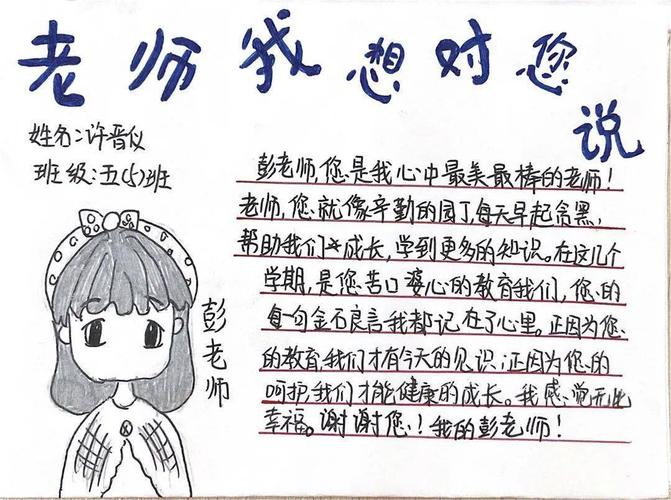 老师我想对您说
姓名:许晋仪
班级:五(5)班
彭老师,您是我心中最美最棒的老师!
老师,您就像辛勤的园丁,每天早起贪黑,
帮助我们成长,学到更多的知识。在这几个
学期,是您苦口婆心的教育我们,您的
每一句金石良言我都记在了心里。正因为您
的教育,我们才有今天的见识;正因为您的
呵护,我们才能健康的成长。我感觉无比
幸福。谢谢您!我的彭老师!
彭老师